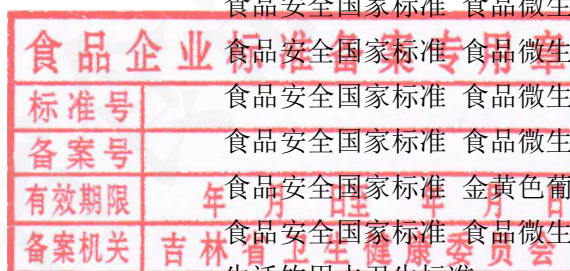 食品安全国家标准 食品微生
食品企业标准备案专用章
食品安全国家标准 食品微生
标准号
食品安全国家标准 食品微生
备案号
食品安全国家标准 食品微生
有效期限 年 月 日至 年 月 日
食品安全国家标准 金黄色葡
备案机关 吉林省卫生健康委员会
食品安全国家标准 食品微生
生活饮用水卫生标准